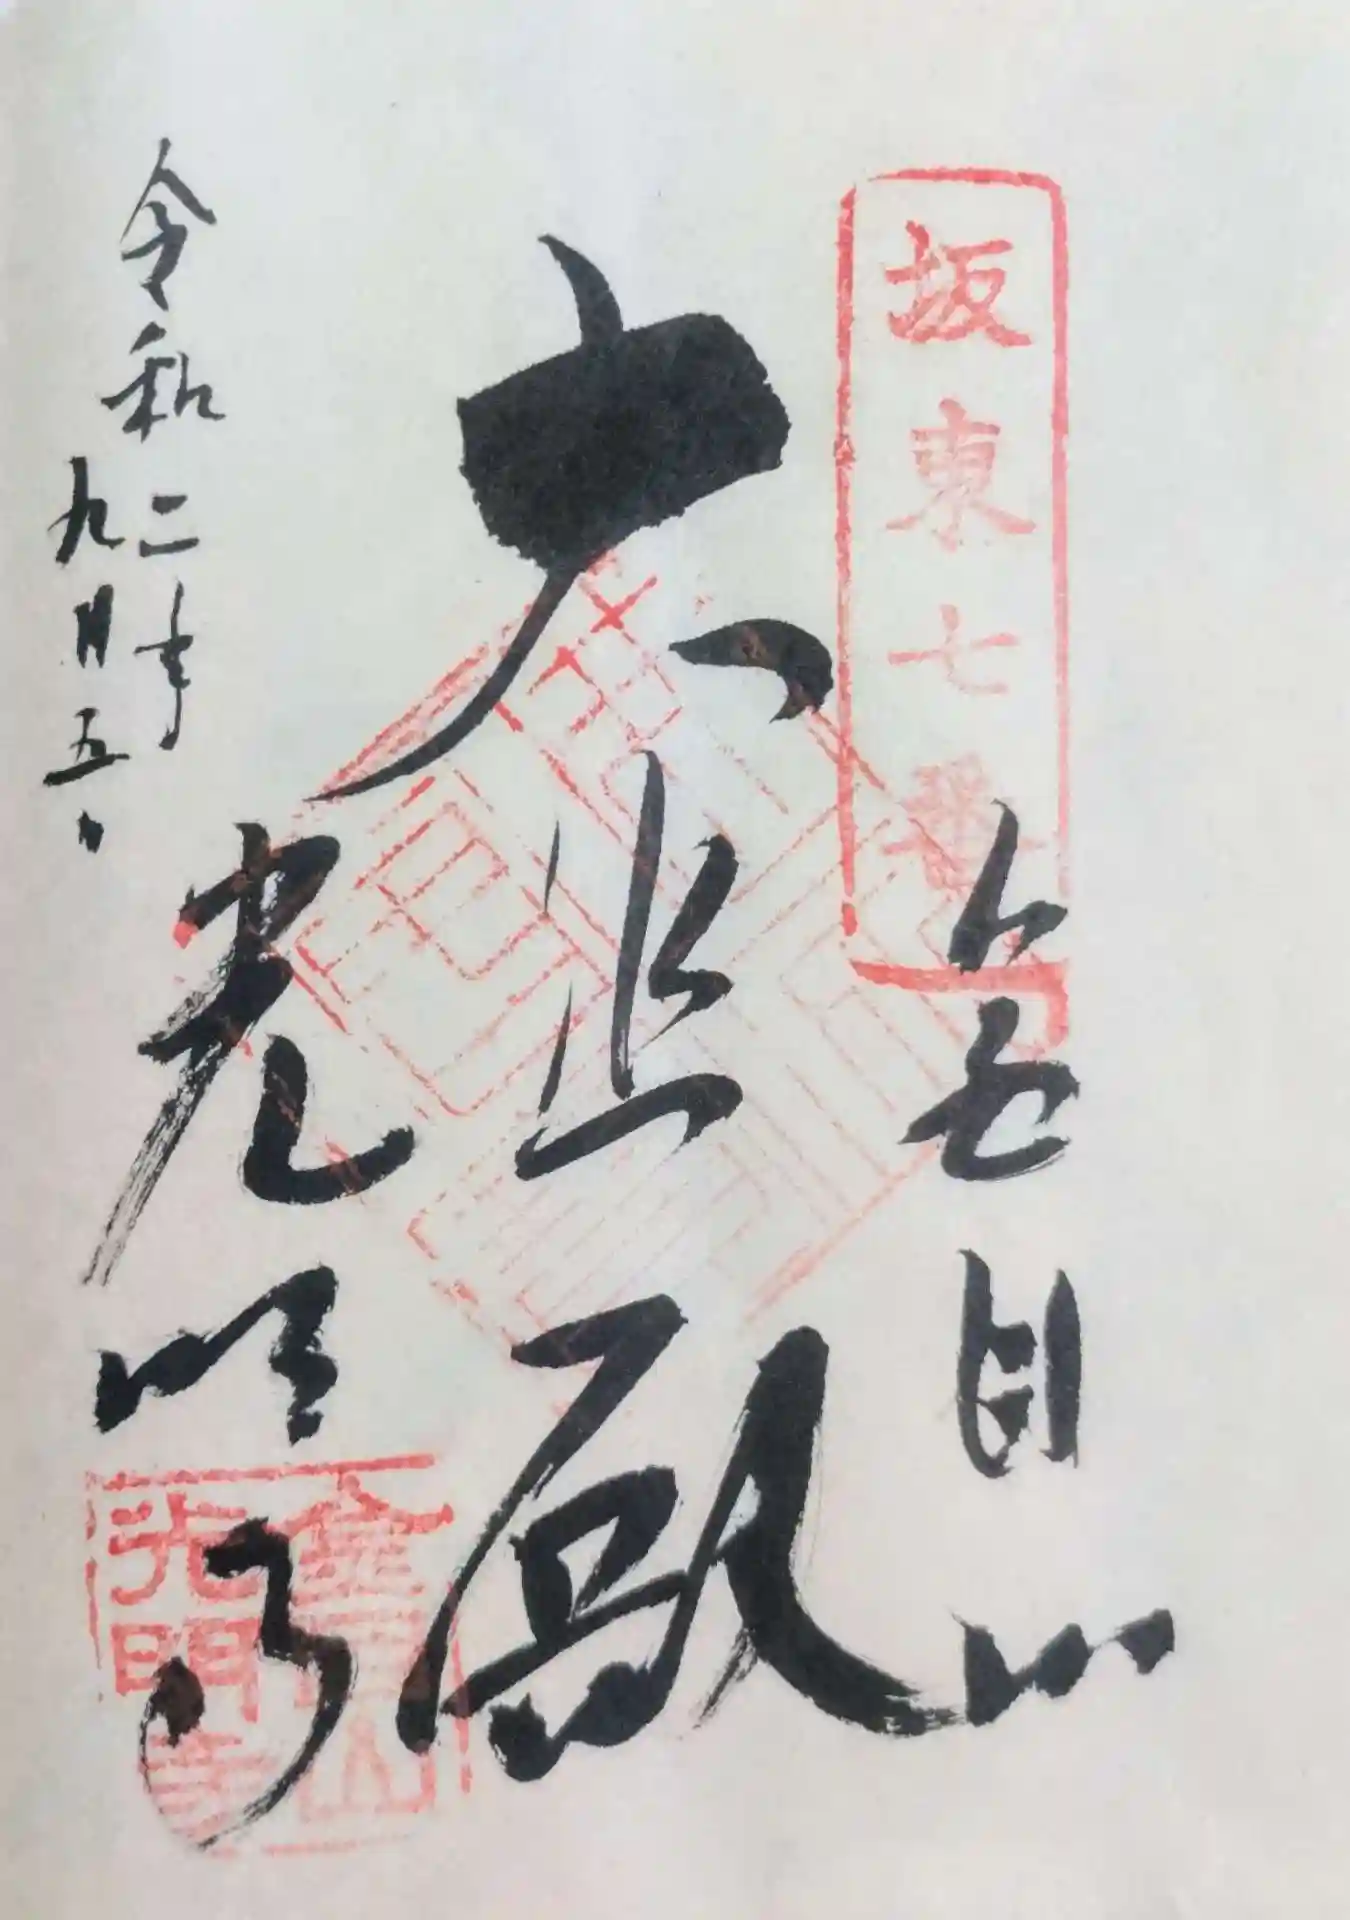 坂東七番
金目山
大悲殿
光明寺
令和二年
九月五日
金目山
光明寺